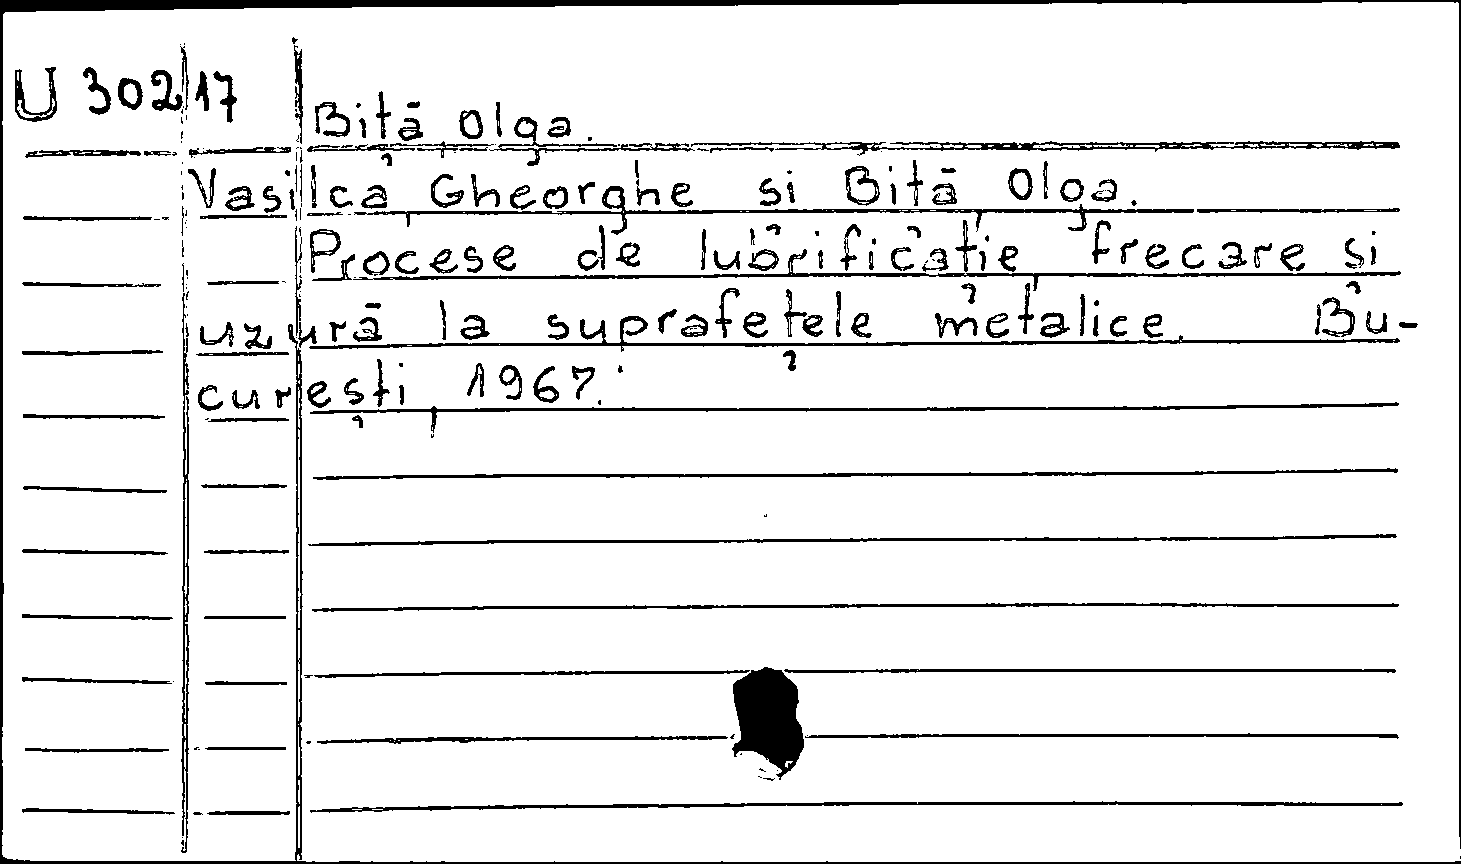 U 30217
Biță, Olga.
Vasilca, Gheorghe și Biță, Olga.
Procese de lubrificație, frecare și
uzură la suprafețele metalice. Bu-
curești, 1967.